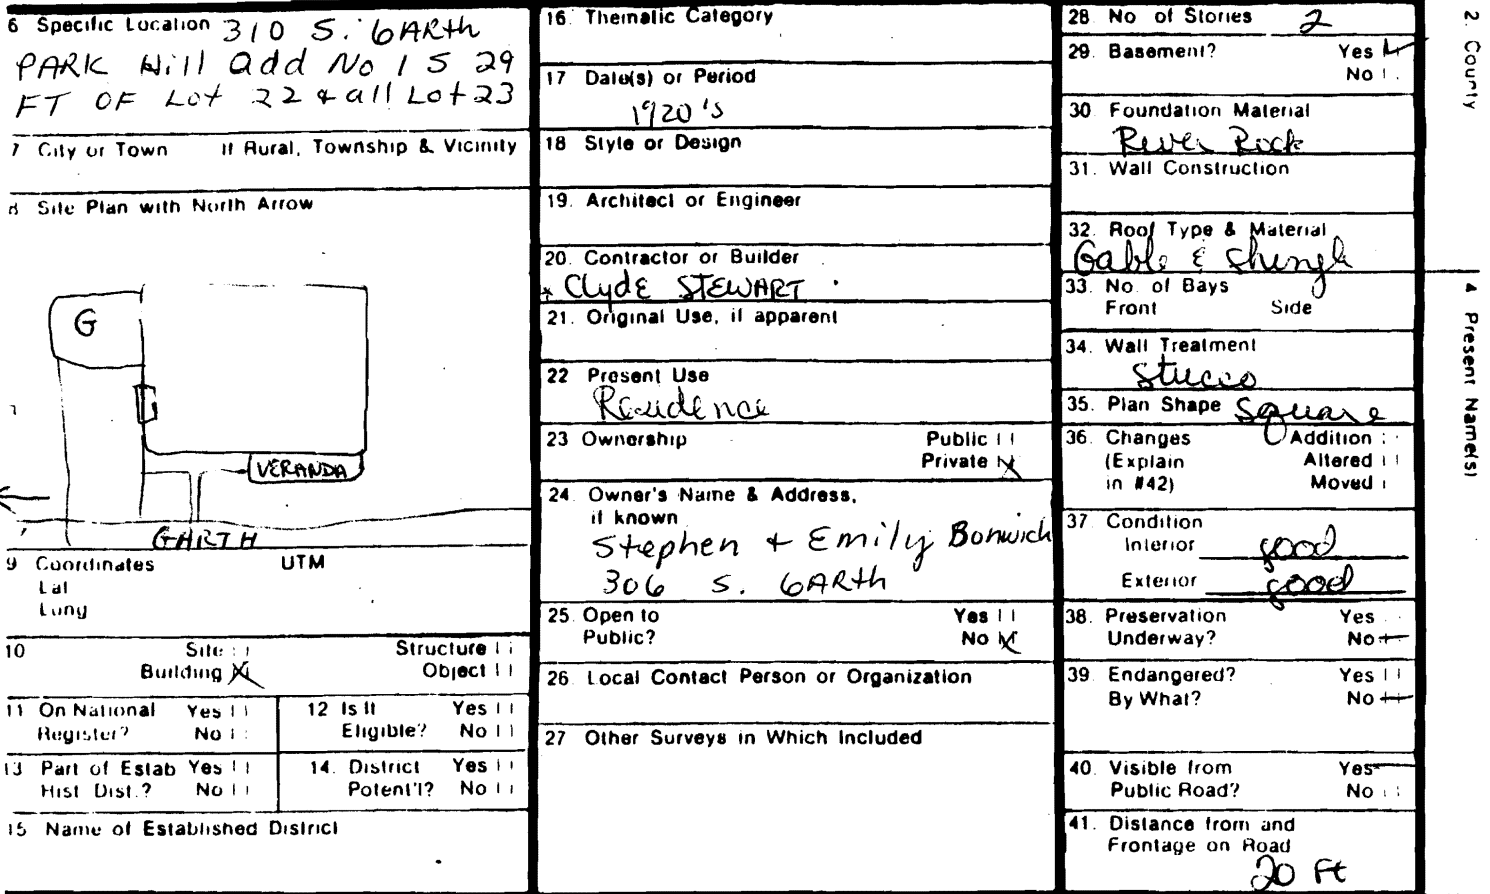 6 Specific Location 310 S. GARth
PARK Hill add No 1 S 29
FT OF Lot 22 & all Lot 23
7 City or Town If Rural, Township & Vicinity
8 Site Plan with North Arrow
G
VERANDA
GARTH
9 Coordinates UTM
Lat
Long
10 Site Structure
Building X Object
11 On National Yes
Register? No
12 Is It Yes
Eligible? No
13 Part of Estab Yes
Hist Dist.? No
14. District Yes
Potent'l? No
15 Name of Established District
16. Thematic Category
17 Date(s) or Period
1920's
18 Style or Design
19. Architect or Engineer
20. Contractor or Builder
* Clyde STEWART
21. Original Use, if apparent
22 Present Use
Residence
23 Ownership Public
Private X
24. Owner's Name & Address,
if known
Stephen + Emily Bonwich
306 S. GARth
25. Open to Yes
Public? No X
26. Local Contact Person or Organization
27 Other Surveys in Which Included
28. No of Stories 2
29. Basement? Yes
No
30. Foundation Material
River Rock
31. Wall Construction
32. Roof Type & Material
Gable & Shingle
33. No. of Bays
Front Side
34. Wall Treatment
Stucco
35. Plan Shape Square
36. Changes Addition
(Explain Altered
in #42) Moved
37. Condition
Interior good
Exterior good
38. Preservation Yes
Underway? No
39. Endangered? Yes
By What? No
40. Visible from Yes
Public Road? No
41. Distance from and
Frontage on Road
20 Ft
2 County
4 Present Name(s)